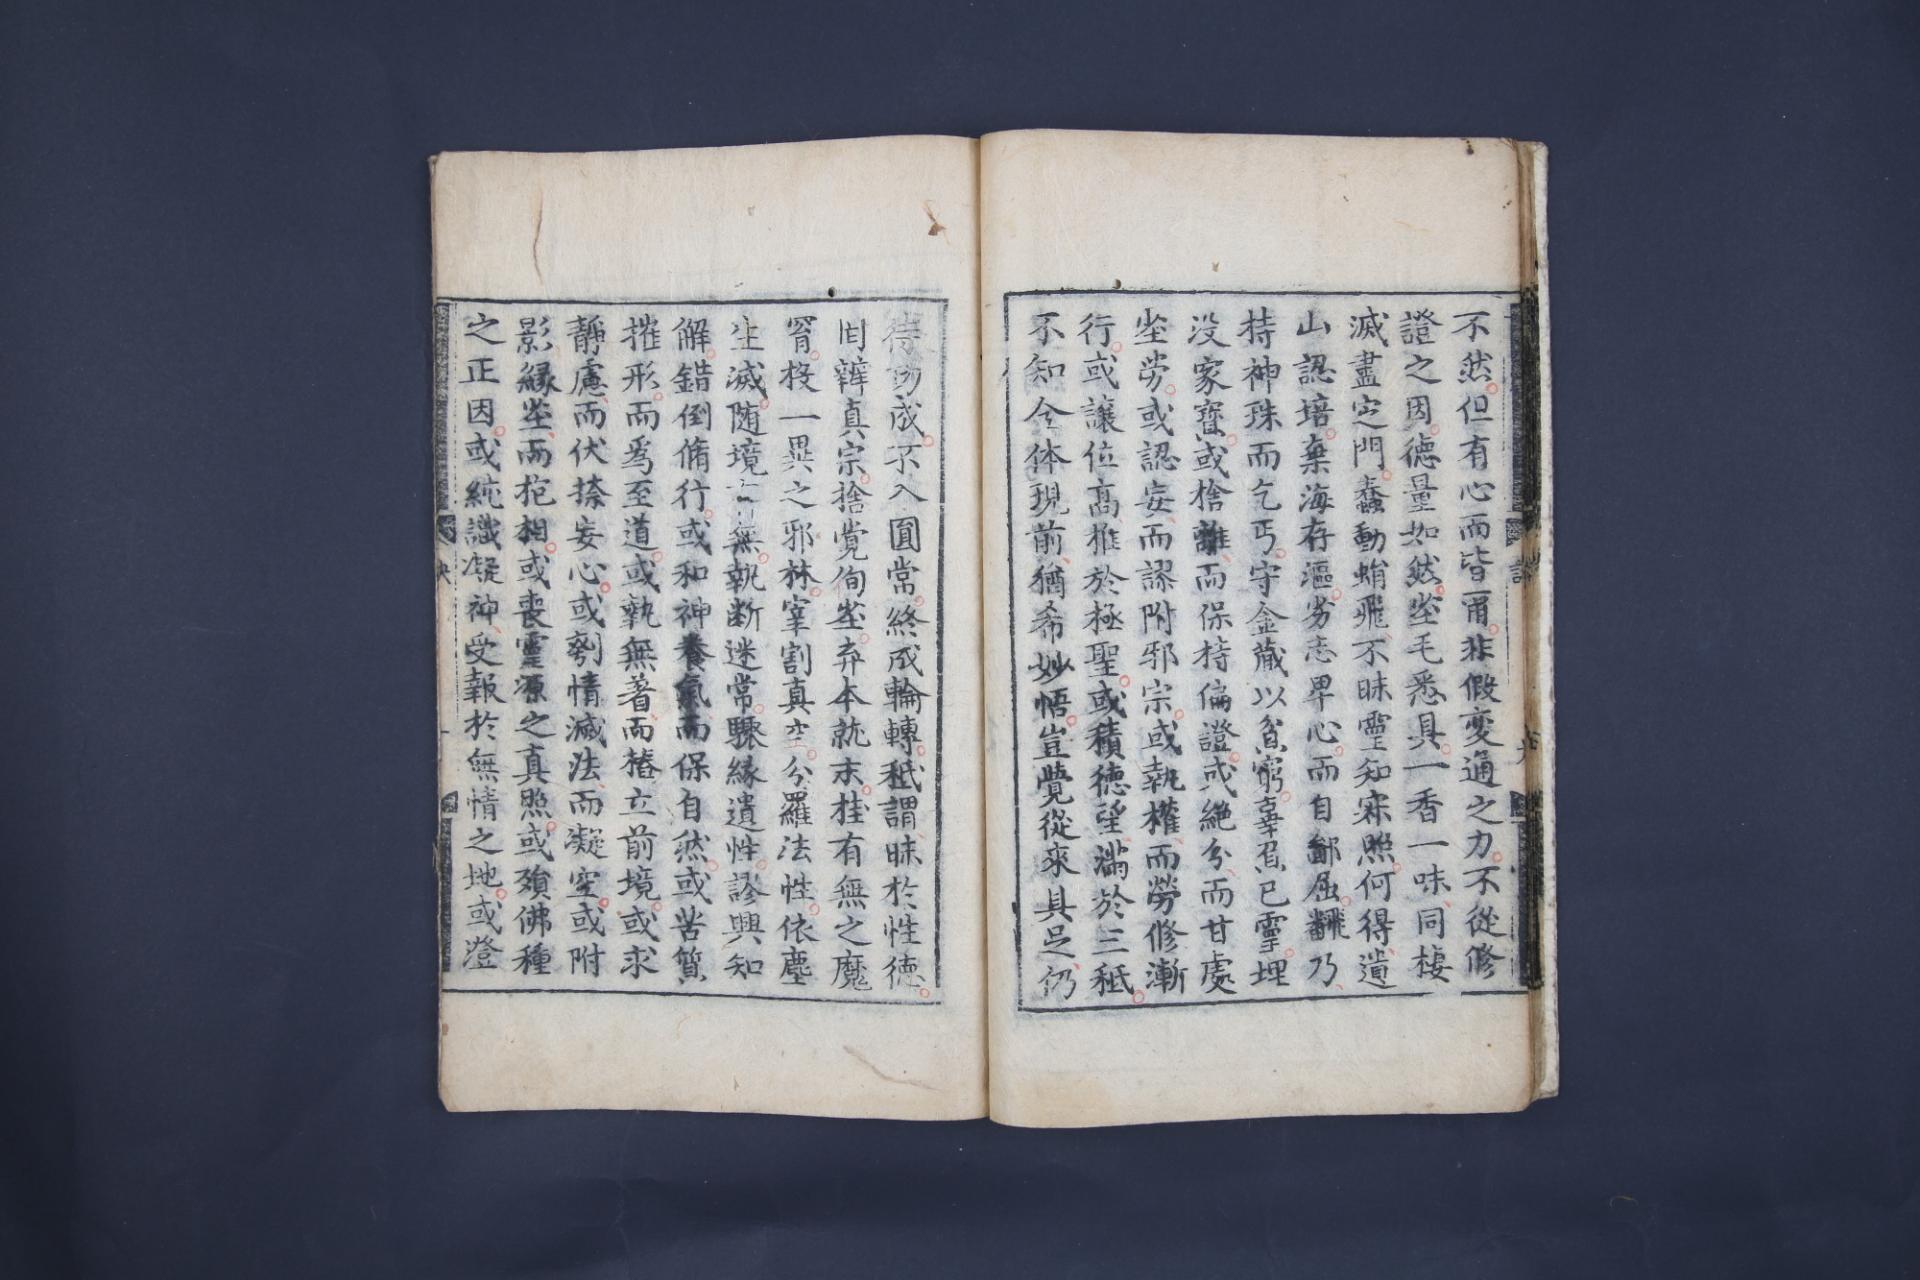 不然但有心而皆尒非假变通之力不從修
證之因德量如然㘴毛悉具一香一味同棲
滅盡㝎門蠢動蛸飛不昧霊知寂照何得遺
山認培棄海存漚劣志卑心而自鄙屈翻乃
持神珠而乞丐守金蔵以貧窮辜負已霊埋
没家寳或捨離而保持偏證或絶分而甘處
㘴劳或認妄而謬附邪宗或執權而勞修漸
行或讓位髙推於極聖或積德望滿於三秖
不知全体現前猶希妙悟豈覺從來具足仍
待功成不入圓常終成輪轉秖謂昧於性德
罔辨真宗捨覚徇㘴弃本就末挂有無之魔
罥投一異之邪林宰割真空分羅法性依塵
生滅随境有無執断迷常驟縁遺性謬興知
解錯倒脩行或和神養氣而保自然或苦質
摧形而爲至道或執無著而樁立前境或求
靜慮而伏捺妄心或刳情滅法而凝空或附
影縁㘴而抱相或丧靈源之真照或殞佛種
之正因或純識凝神受報於無情之地或澄
訣